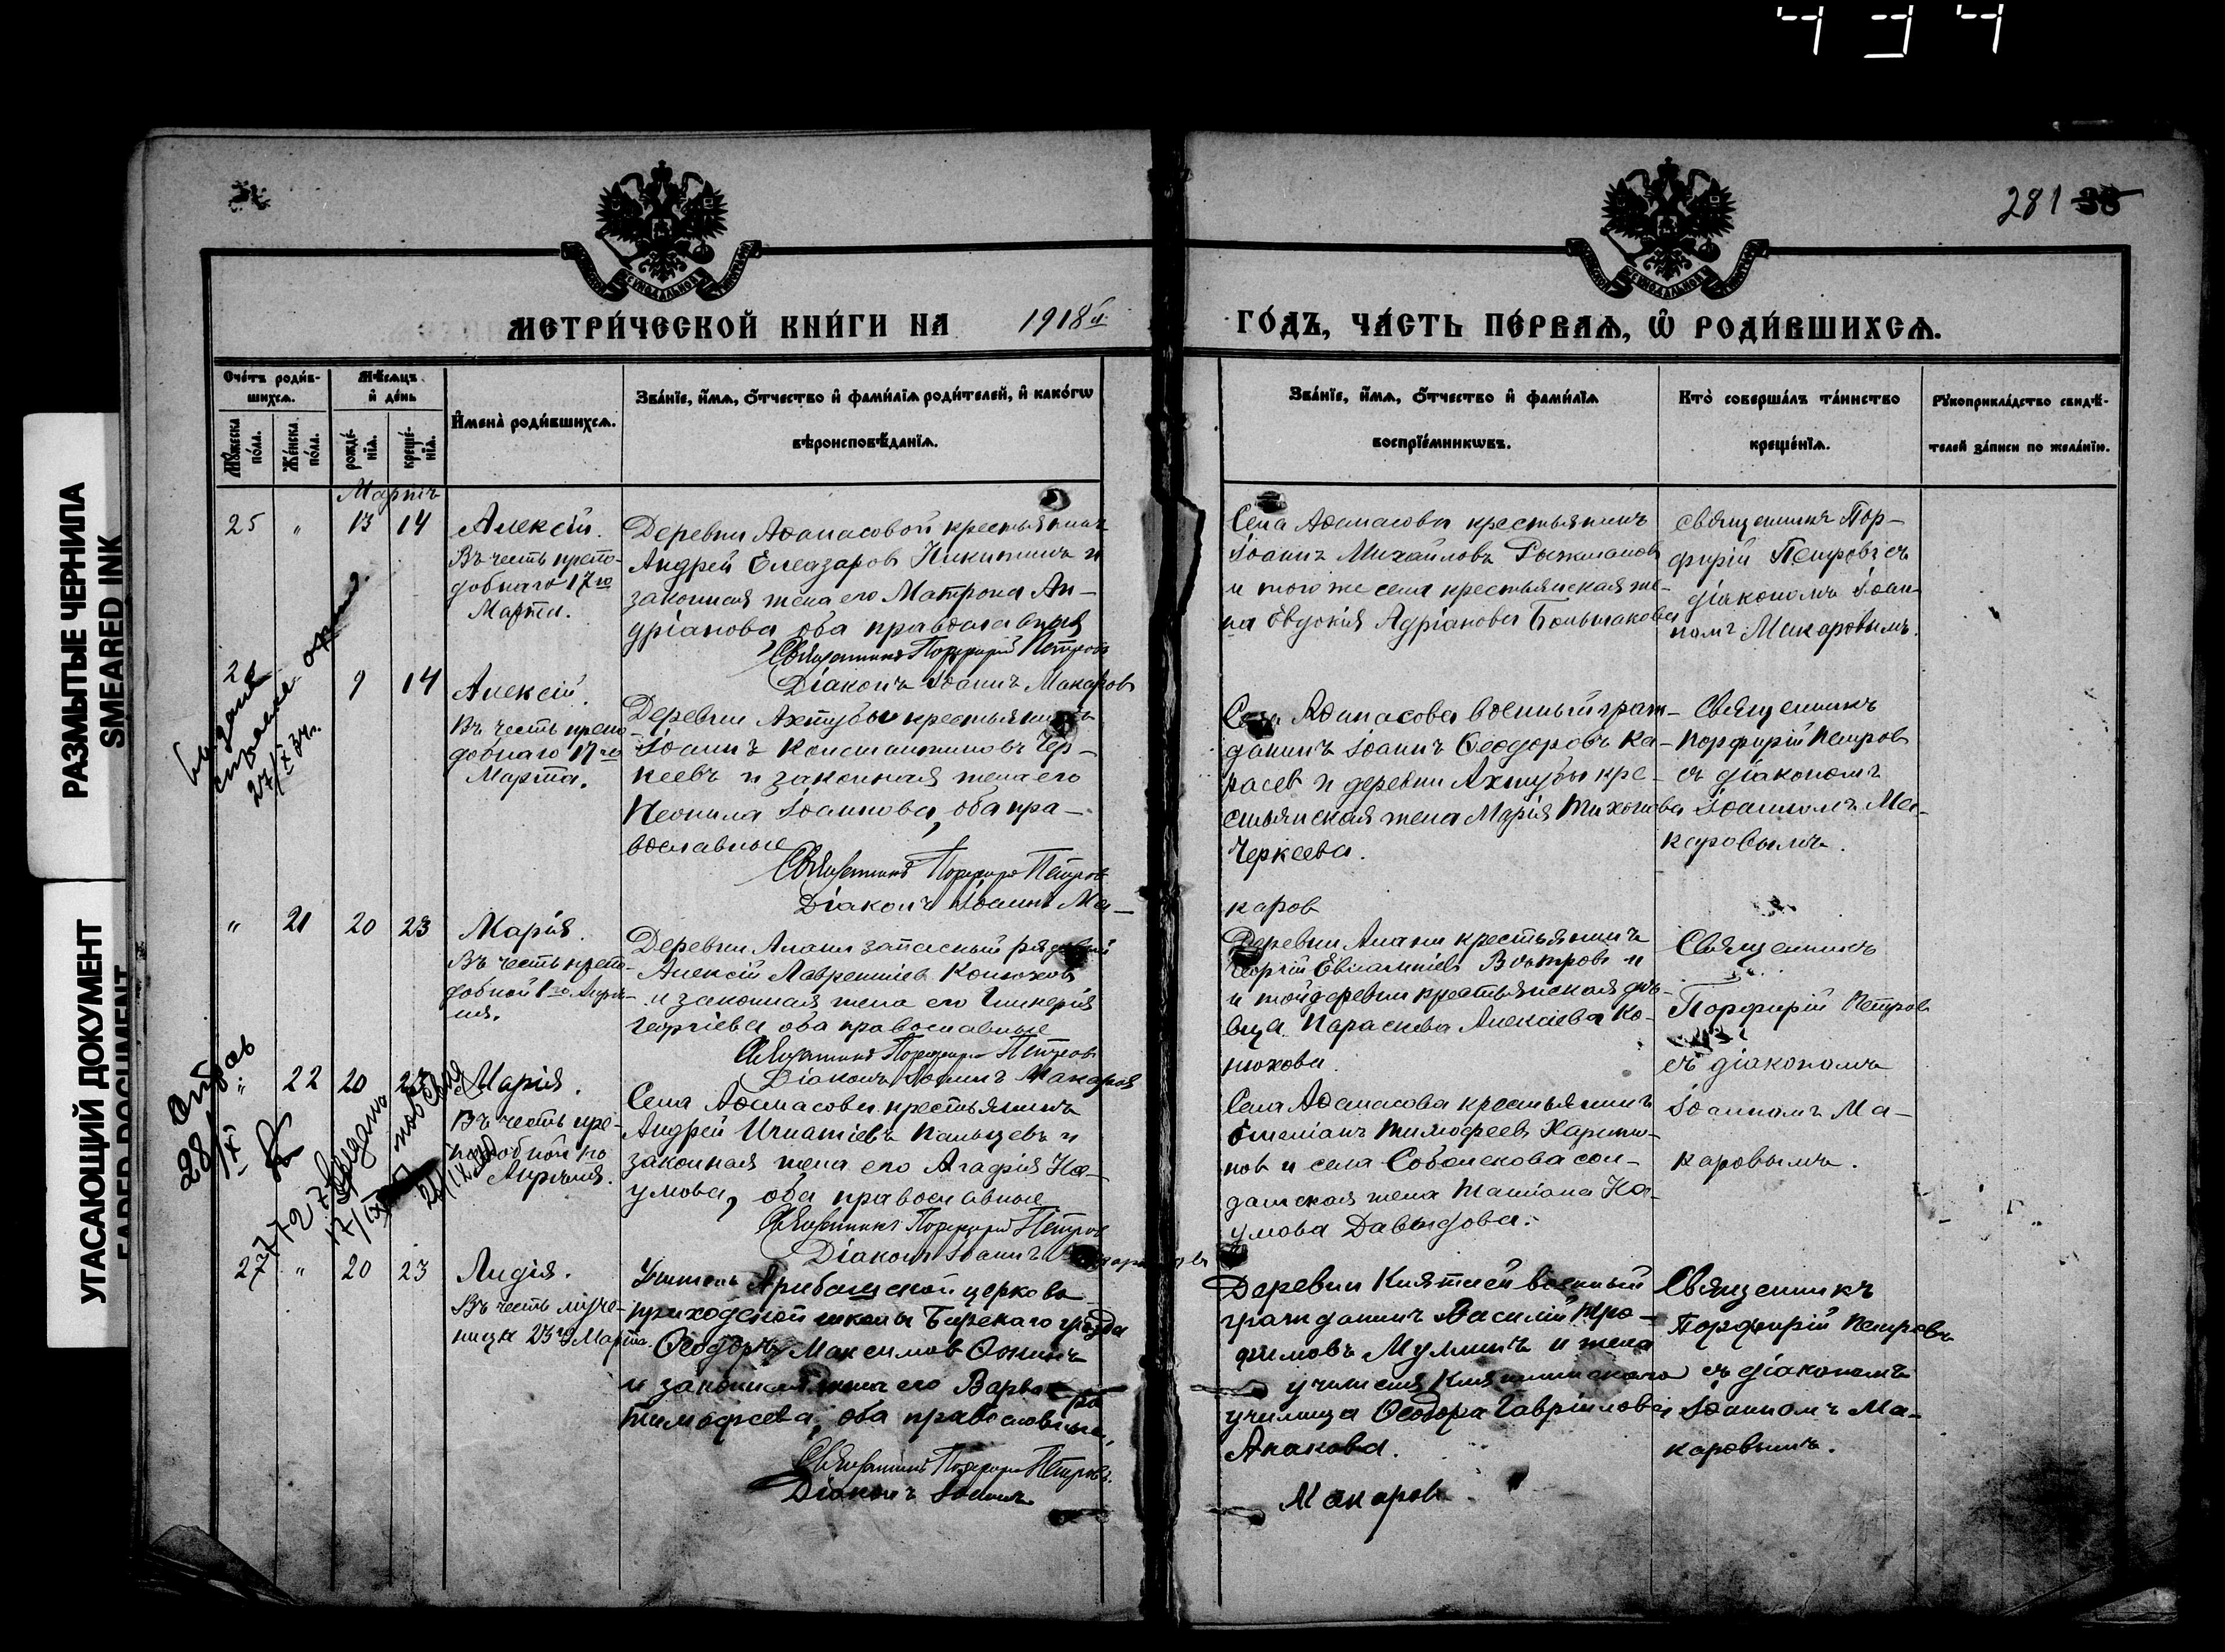 434
281 38
МЕТРИ́ЧЕСКОЙ КНИ́ГИ НА 1918й ГО́ДЪ, ЧА́СТЬ ПЕ́РВАѦ, Ѡ҆ РОДИ́ВШИХСѦ.
Сче́тъ роди́в-
шихсѧ.
Мꙋ́жеска
по́ла.
Же́нска
по́ла.
Мѣ́сѧцъ
и҆ де́нь
рожде́-
нїѧ.
креще́-
нїѧ.
И҆мена̀ роди́вшихсѧ.
Зва́нїе, и҆́мѧ, ѻ҆́тчество и҆ фами́лїѧ роди́телей, и҆ како́гѡ
вѣроисповѣ́данїѧ.
Зва́нїе, и҆́мѧ, ѻ҆́тчество и҆ фами́лїѧ
воспрїе́мникѡвъ.
Кто̀ соверша́лъ та́инство
креще́нїѧ.
Рꙋкоприкла́дство свидѣ́-
телей за́писи по жела́нїю.
Мартъ
25 " 13 14
Алексій.
Въ честь препо-
добнаго 17го
Марта.
Деревни Аѳанасовой крестьянинъ
Андрей Елеазаров Никитинъ и
законная жена его Матрона Ан-
дріанова оба православныя
Священникъ Порфирій Петровъ
Діаконъ Іоаннъ Макаровъ
Села Аѳанасова крестьянинъ
Іоаннъ Михайловъ
и того же села крестьянская же-
на Евдокія Адріанова Большакова
священникъ Пор-
фирій Петровъ съ
діакономъ Іоан-
номъ Макаровымъ.
26 9 14
Алексій.
Въ честь препо-
добнаго 17го
Марта.
Деревни Ахтубы крестьянинъ
Іоаннъ Константиновъ Чер-
кеевъ и законная жена его
Неонила Іоаннова, оба пра-
вославные
Священникъ Порфирій Петровъ
Діаконъ Іоаннъ Ма-
каров
Села Аѳанасова военный граж-
данинъ Іоаннъ Ѳеодоровъ Ка-
расев и деревни Ахтубы кре-
стьянская жена Марія Тихонова
Черкеева.
Священникъ
Порфирій Петров
съ діакономъ
Іоанномъ Ма-
каровымъ.
" 21 20 23
Марія.
Въ честь препо-
добной 1го Апрѣ-
ля.
Деревни Алани запасный рядовый
Алексій Лаврентіев Конюхов
и законная жена его Гликерія
Георгіева оба православные
Священникъ Порфирій Петровъ
Діаконъ Іоаннъ Макаров
Деревни Алани крестьянинъ
Георгій Евлампіевъ и
и той деревни крестьянская дѣ-
вица Параскева Алексіева Ко-
нюхова.
Священникъ
Порфирій Петров
съ діакономъ
Іоанномъ Ма-
каровымъ.
" 22 20
Марія.
Въ честь пре-
подобной 1го
Апрѣля.
Села Аѳанасова крестьянинъ
Андрей Игнатіевъ Пальцевъ и
законная жена его Агафія На-
умова, оба православные
Священникъ Порфирій Петров
Діаконъ Іоаннъ
Села Аѳанасова крестьянинъ
Тимофеев Харито-
нов и села Соболекова сол-
датская жена Татіана На-
умова Давыдова.
27 " 20 23
Лидія.
Въ честь муче-
ницы 23го Марта.
Учитель церковно
приходской школы Бирскаго уѣзда
Ѳеодоръ Максимов
и законная жена его Варва-
ра
Тимофеева, оба православные,
Священникъ Порфирій Петровъ.
Діаконъ Іоаннъ
Макаров
Деревни военный
гражданинъ Василій Тро-
фимовъ Муллинъ и жена
учителя
училища Ѳеодора Гавріилова
Анакова.
Священникъ
Порфирій Петровъ
съ діакономъ
Іоанномъ Ма-
каровымъ.
27/IX 34г.
28/IX
РАЗМЫТЫЕ ЧЕРНИЛА
SMEARED INK
УГАСАЮЩИЙ ДОКУМЕНТ
FADED DOCUMENT